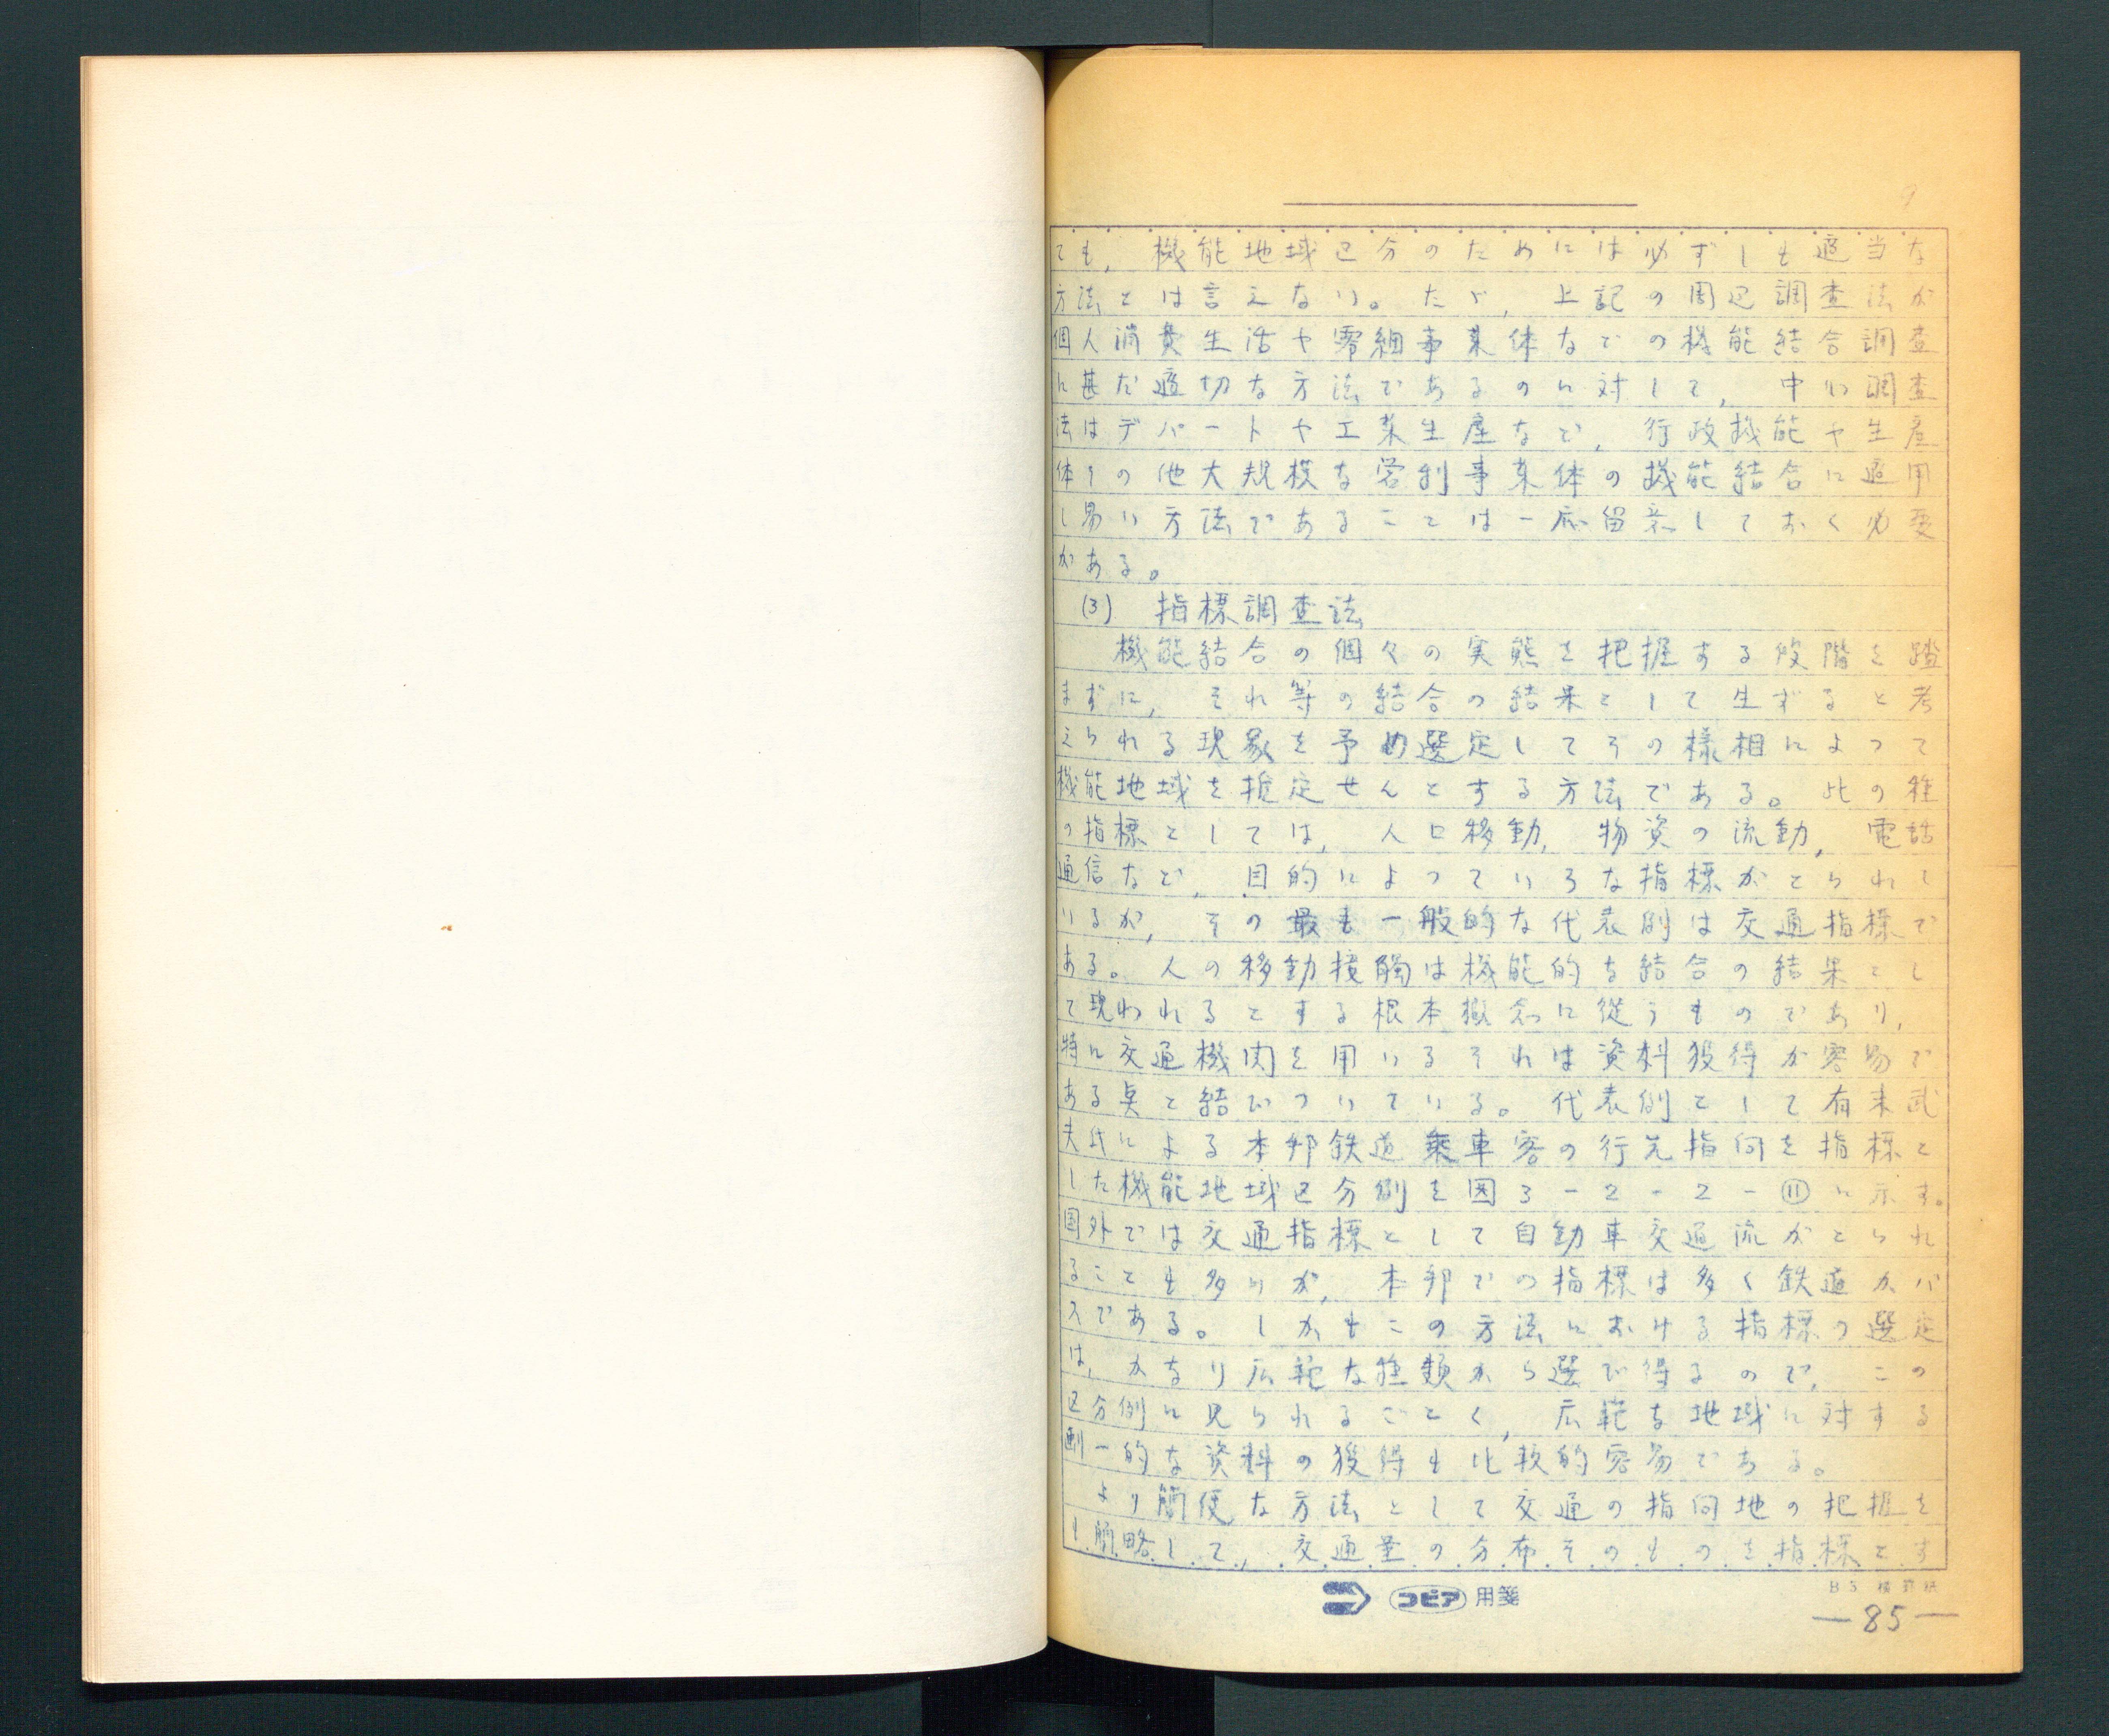 9
ても, 機能地域区分のためには必ずしも適当な
方法とは言えない。たゞ, 上記の周辺調査法が
個人消費生活や零細事業体などの機能結合調査
に甚だ適切な方法であるのに対して, 中心調査
法はデパートや工業生産など, 行政機能や生産
体その他大規模な営利事業体の機能結合に適用
し易い方法であることは一応留意しておく必要
がある。
(3) 指標調査法
機能結合の個々の実態を把握する段階を踏
まずに, それ等の結合の結果として生ずると考
えられる現象を予め選定してその様相によって
機能地域を推定せんとする方法である。此の種
の指標としては, 人口移動, 物資の流動, 電話
通信など, 目的によっていろな指標がとられて
いるが, その最も一般的な代表例は交通指標で
ある。人の移動接触は機能的な結合の結果とし
て現われるとする根本概念に従うものであり,
特に交通機関を用いるそれは資料獲得が容易で
ある点と結びついている。代表例として有末武
夫氏による本邦鉄道乗車客の行先指向を指標と
した機能地域区分例を図3-2-2-⑪に示す。
国外では交通指標として自動車交通流がとられ
ることも多いが, 本邦での指標は多く鉄道かバ
スである。しかもこの方法における指標の選定
は, かなり広範な種類から選び得るので, この
区分例に見られるごとく, 広範な地域に対する
劃一的な資料の獲得も比較的容易である。
より簡便な方法として交通の指向地の把握を
も簡略して, 交通量の分布そのものを指標とす
コピア 用箋
B5 横罫紙
—85—